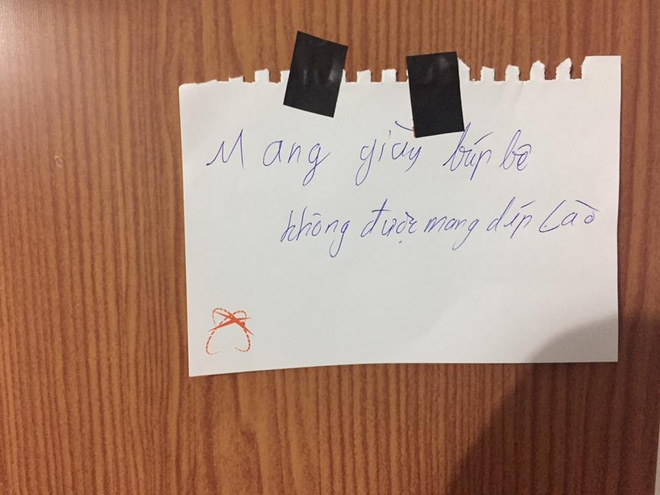 Mang giày búp bê
không được mang dép Lào